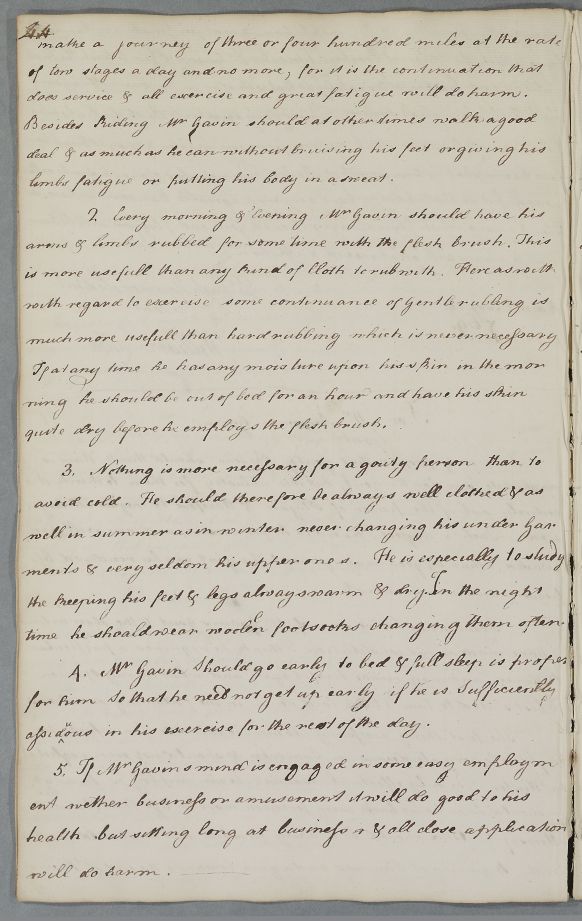 44
make a journey of three or four hundred miles at the rate
of two stages a day and no more, for it is the continuation that
does service & all exercise and great fatigue will do harm.
Besides Riding Mr Gavin should at other times walk a good
deal & as much as he can without bruising his feet or giving his
limbs fatigue or putting his body in a sweat.
2 Every morning & Evening Mr Gavin should have his
arms & limbs rubbed for some time with the flesh brush. This
is more usefull than any kind of Cloth to rub with. Here as with
with regard to exercise some continuance of gentle rubbing is
much more usefull than hard rubbing which is never necessary
If at any time he has any moisture upon his skin in the mor
ning he should be out of bed for an hour and have his skin
quite dry before he employs the flesh brush.
3. Nothing is more necessary for a gouty person than to
avoid cold. He should therefore be always well clothed & as
well in summer as in winter never changing his under Gar
ments & very seldom his upper ones. He is especially to study
the keeping his feet & legs always warm & dry. In the night
time he should wear woolen footsocks changing them often.
4. Mr Gavin Should go early to bed & full sleep is proper
for him So that he need not get up early if he is Sufficiently
assiduous in his exercise for the rest of the day.
5. If Mr Gavins mind is engaged in some easy employm
ent wether business or amusement it will do good to his
health but sitting long at business & all close application
will do harm.